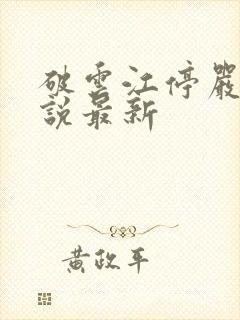 破雲江停嚴
說最新
黃政平